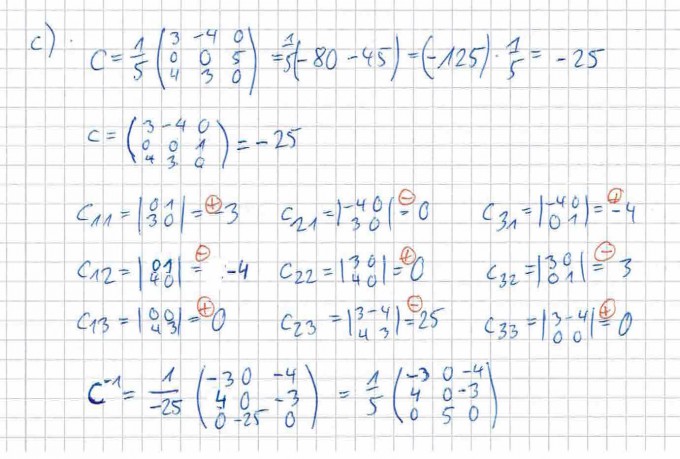 c).
C = 1/5 (3 -4 0; 0 0 5; 4 3 0) = 1/5(-80 -45) = (-125) · 1/5 = -25
C = (3 -4 0; 0 0 1; 4 3 0) = -25
C11 = |0 1; 3 0| =⊕ -3 C21 = |-4 0; 3 0| =⊖ 0 C31 = |-4 0; 0 1| =⊕ -4
C12 = |0 1; 4 0| =⊖ -4 C22 = |3 0; 4 0| =⊕ 0 C32 = |3 0; 0 1| =⊖ 3
C13 = |0 0; 4 3| =⊕ 0 C23 = |3 -4; 4 3| =⊖ 25 C33 = |3 -4; 0 0| =⊕ 0
C⁻¹ = 1/-25 (-3 0 -4; 4 0 -3; 0 -25 0) = 1/5 (-3 0 -4; 4 0 -3; 0 5 0)